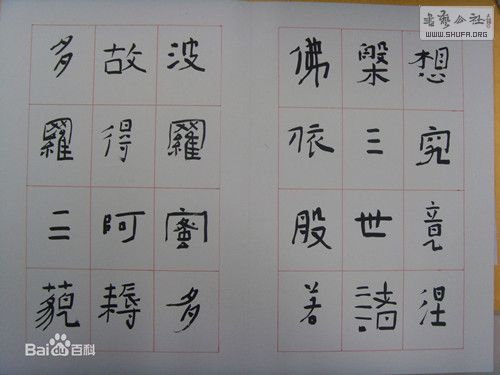 想究竟涅
槃三世諸
佛依般若
波羅蜜多
故得阿耨
多羅三藐
书艺公社
WWW.SHUFA.ORG
Bai百科